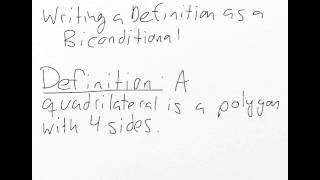 Writing a Definition as a
Biconditional
Definition: A
quadrilateral is a polygon
with 4 sides.